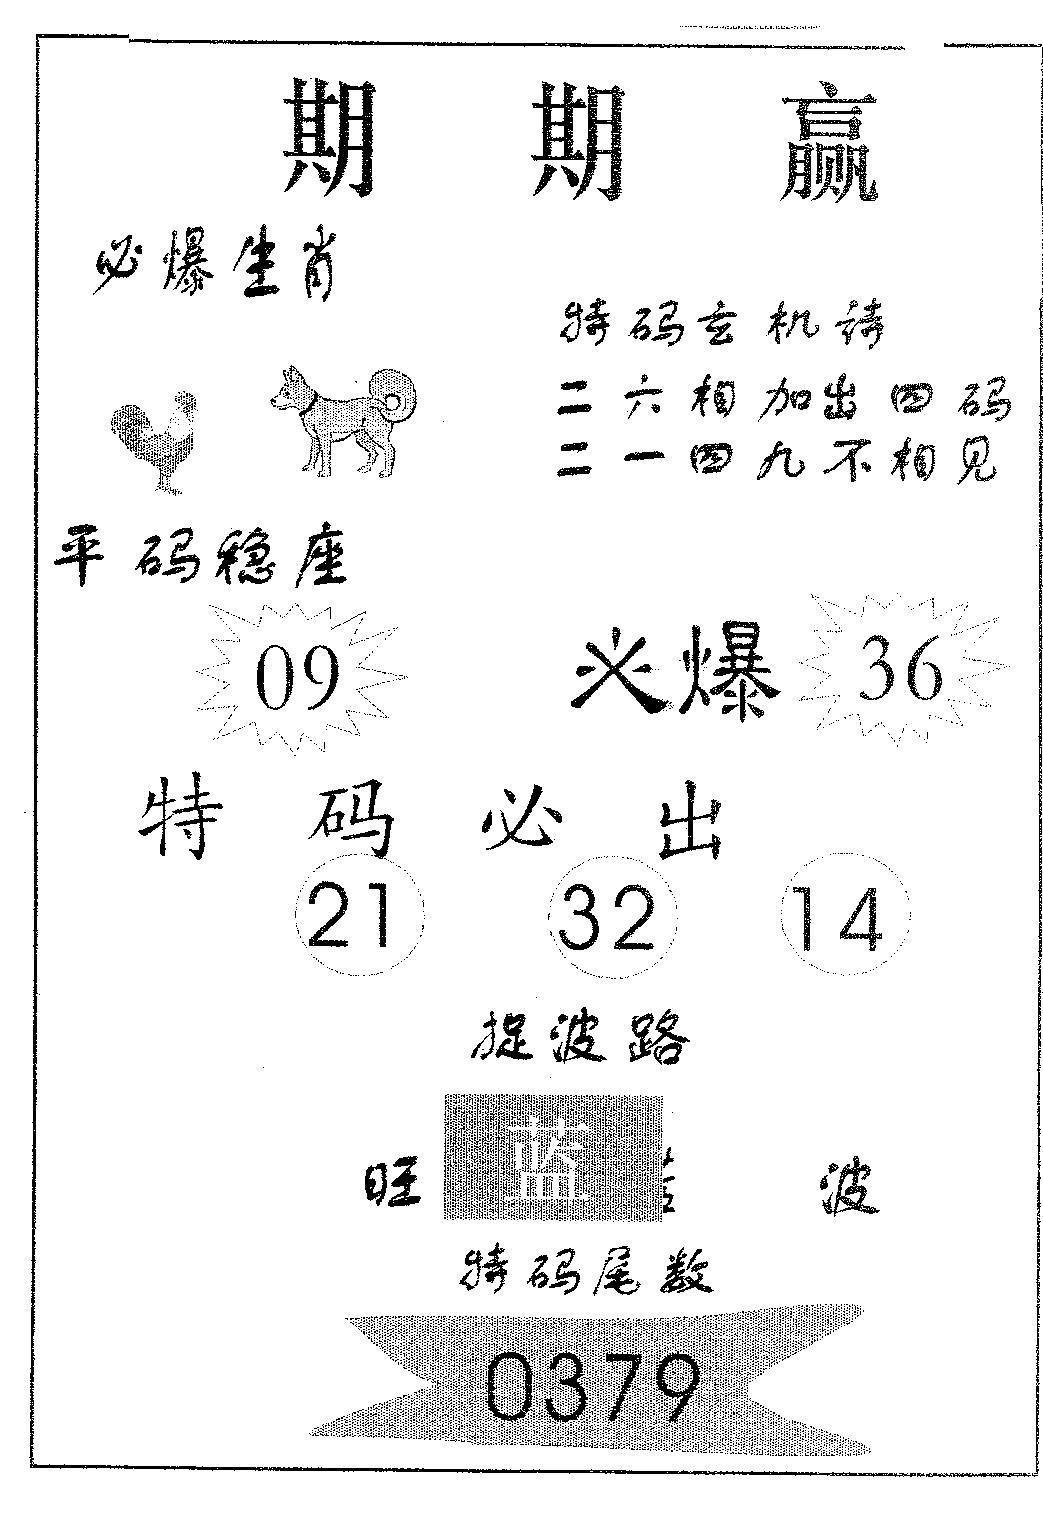 期期赢
必爆生肖
特码玄机诗
二六相加出四码
二一四九不相见
平码稳座
09
必爆 36
特码必出
21 32 14
捉波路
旺 蓝 波
特码尾数
0379